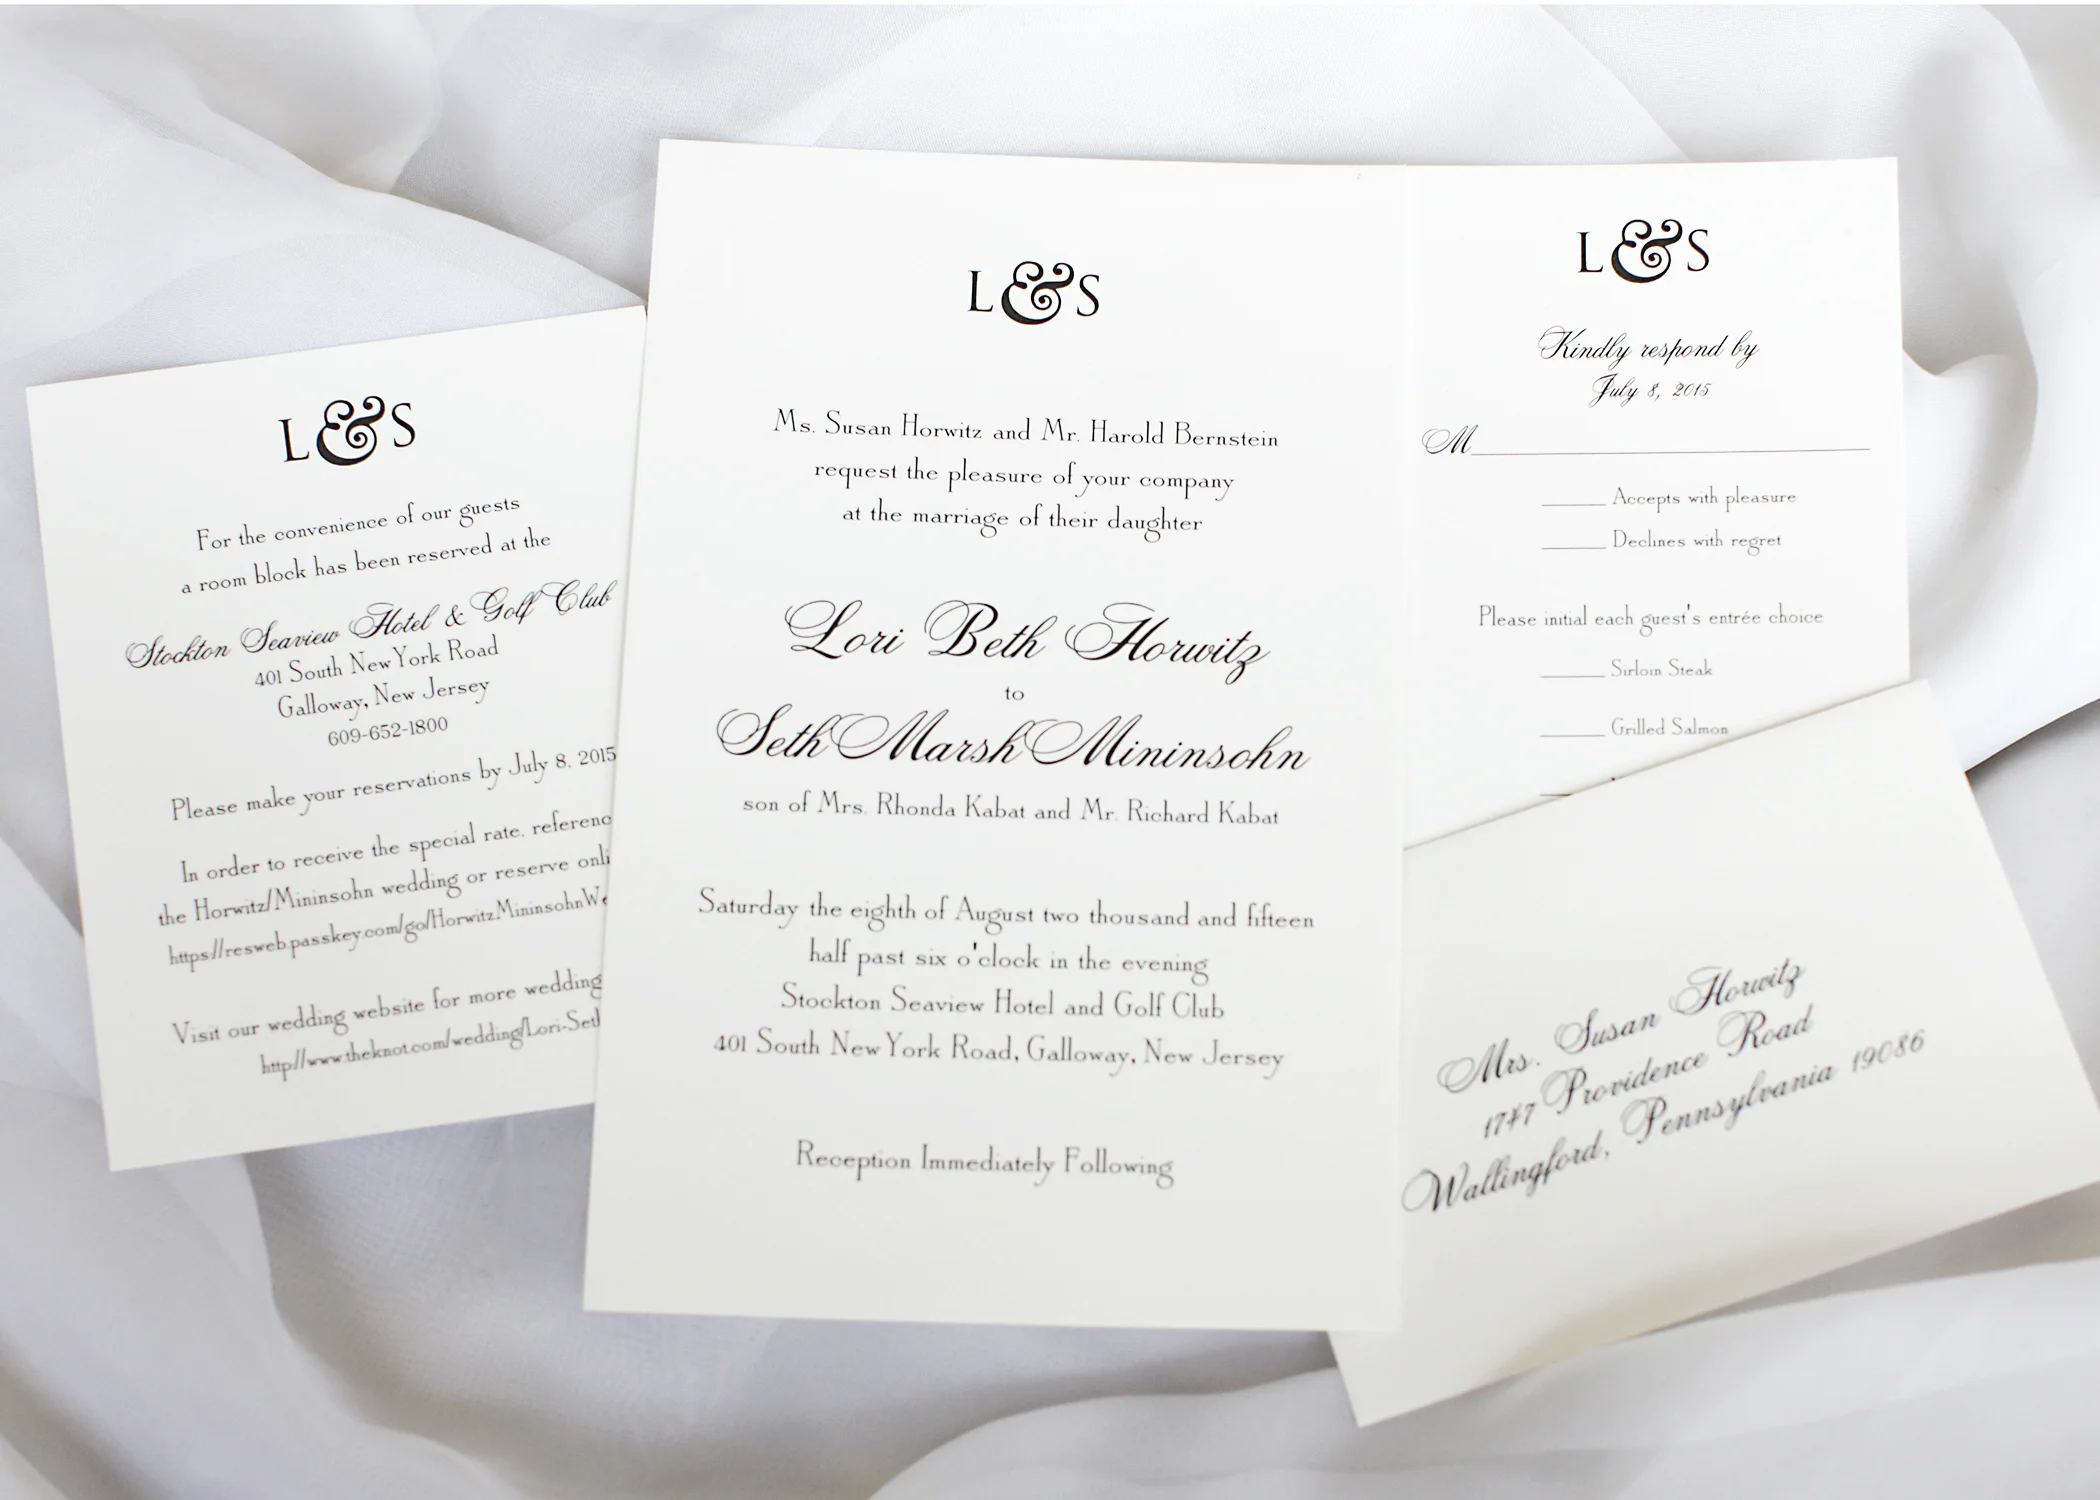 L&S
For the convenience of our guests
a room block has been reserved at the
Stockton Seaview Hotel & Golf Club
401 South New York Road
Galloway, New Jersey
609-652-1800
Please make your reservations by July 8, 2015
In order to receive the special rate, referenc
the Horwitz/Mininsohn wedding or reserve onli
https://resweb.passkey.com/go/HorwitzMininsohnWe
Visit our wedding website for more wedding
http://www.theknot.com/wedding/Lori-Set
L&S
Ms. Susan Horwitz and Mr. Harold Bernstein
request the pleasure of your company
at the marriage of their daughter
Lori Beth Horwitz
to
Seth Marsh Mininsohn
son of Mrs. Rhonda Kabat and Mr. Richard Kabat
Saturday the eighth of August two thousand and fifteen
half past six o'clock in the evening
Stockton Seaview Hotel and Golf Club
401 South New York Road, Galloway, New Jersey
Reception Immediately Following
L&S
Kindly respond by
July 8, 2015
M
Accepts with pleasure
Declines with regret
Please initial each guest's entrée choice
Sirloin Steak
Grilled Salmon
Mrs. Susan Horwitz
1747 Providence Road
Wallingford, Pennsylvania 19086